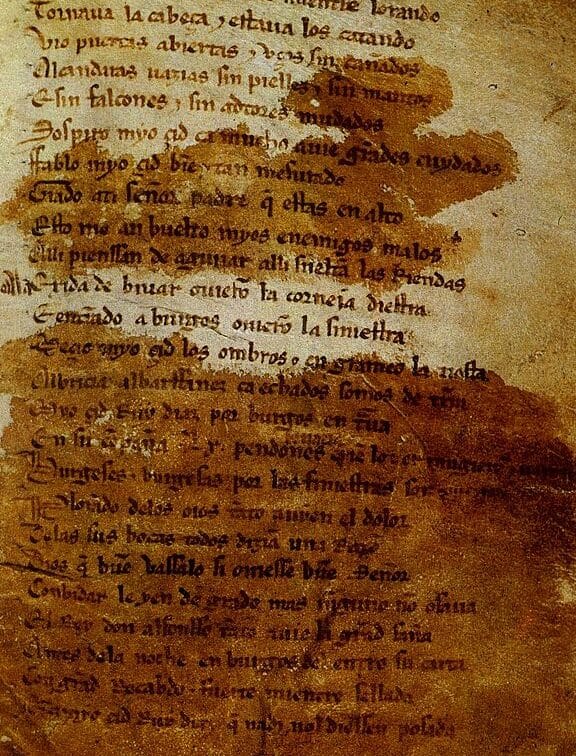 mientre lorando
Tornava la cabeça ⁊ estava los catando
Vio puertas abiertas ⁊ vços sin cañados
Alcandaras uazias sin pielles ⁊ sin mantos
E sin falcones ⁊ sin adtores mudados
Sospiro myo çid ca mucho auie grãdes cuydados
ffablo myo çid biẽ ⁊ tan mesurado
Grado ati señor padre q̃ estas en alto
Esto me an buelto myos enemigos malos
Alli pienssan de aguiiar alli sueltã las Riendas
Ala exida de biuar ouierõ la corneia diestra
E entrãdo a burgos ouierõ la siniestra
Meçio myo çid los ombros ⁊ engrameo la tiesta
Albricia albarffanez ca echados somos de tierra
Myo çid Ruy diaz por burgos en traua
En su cõpaña .Lx. pendones
Burgeses ⁊ burgesas por las finiestras son
Plorando delos oios tãto auyen el dolor
Delas sus bocas todos dizian una Razõ
Dios q̃ buẽ vassalo si ouiesse buẽ Señor
Conbidar le yen de grado mas ninguno nõ osaua
El Rey don alfonsso tãto auie la grãd saña
Antes dela noche en burgos del entro su carta
Con grãd Recabdo ⁊ fuerte mientre sellada
çid Ruy diaz q̃ nadi nol diessen posada